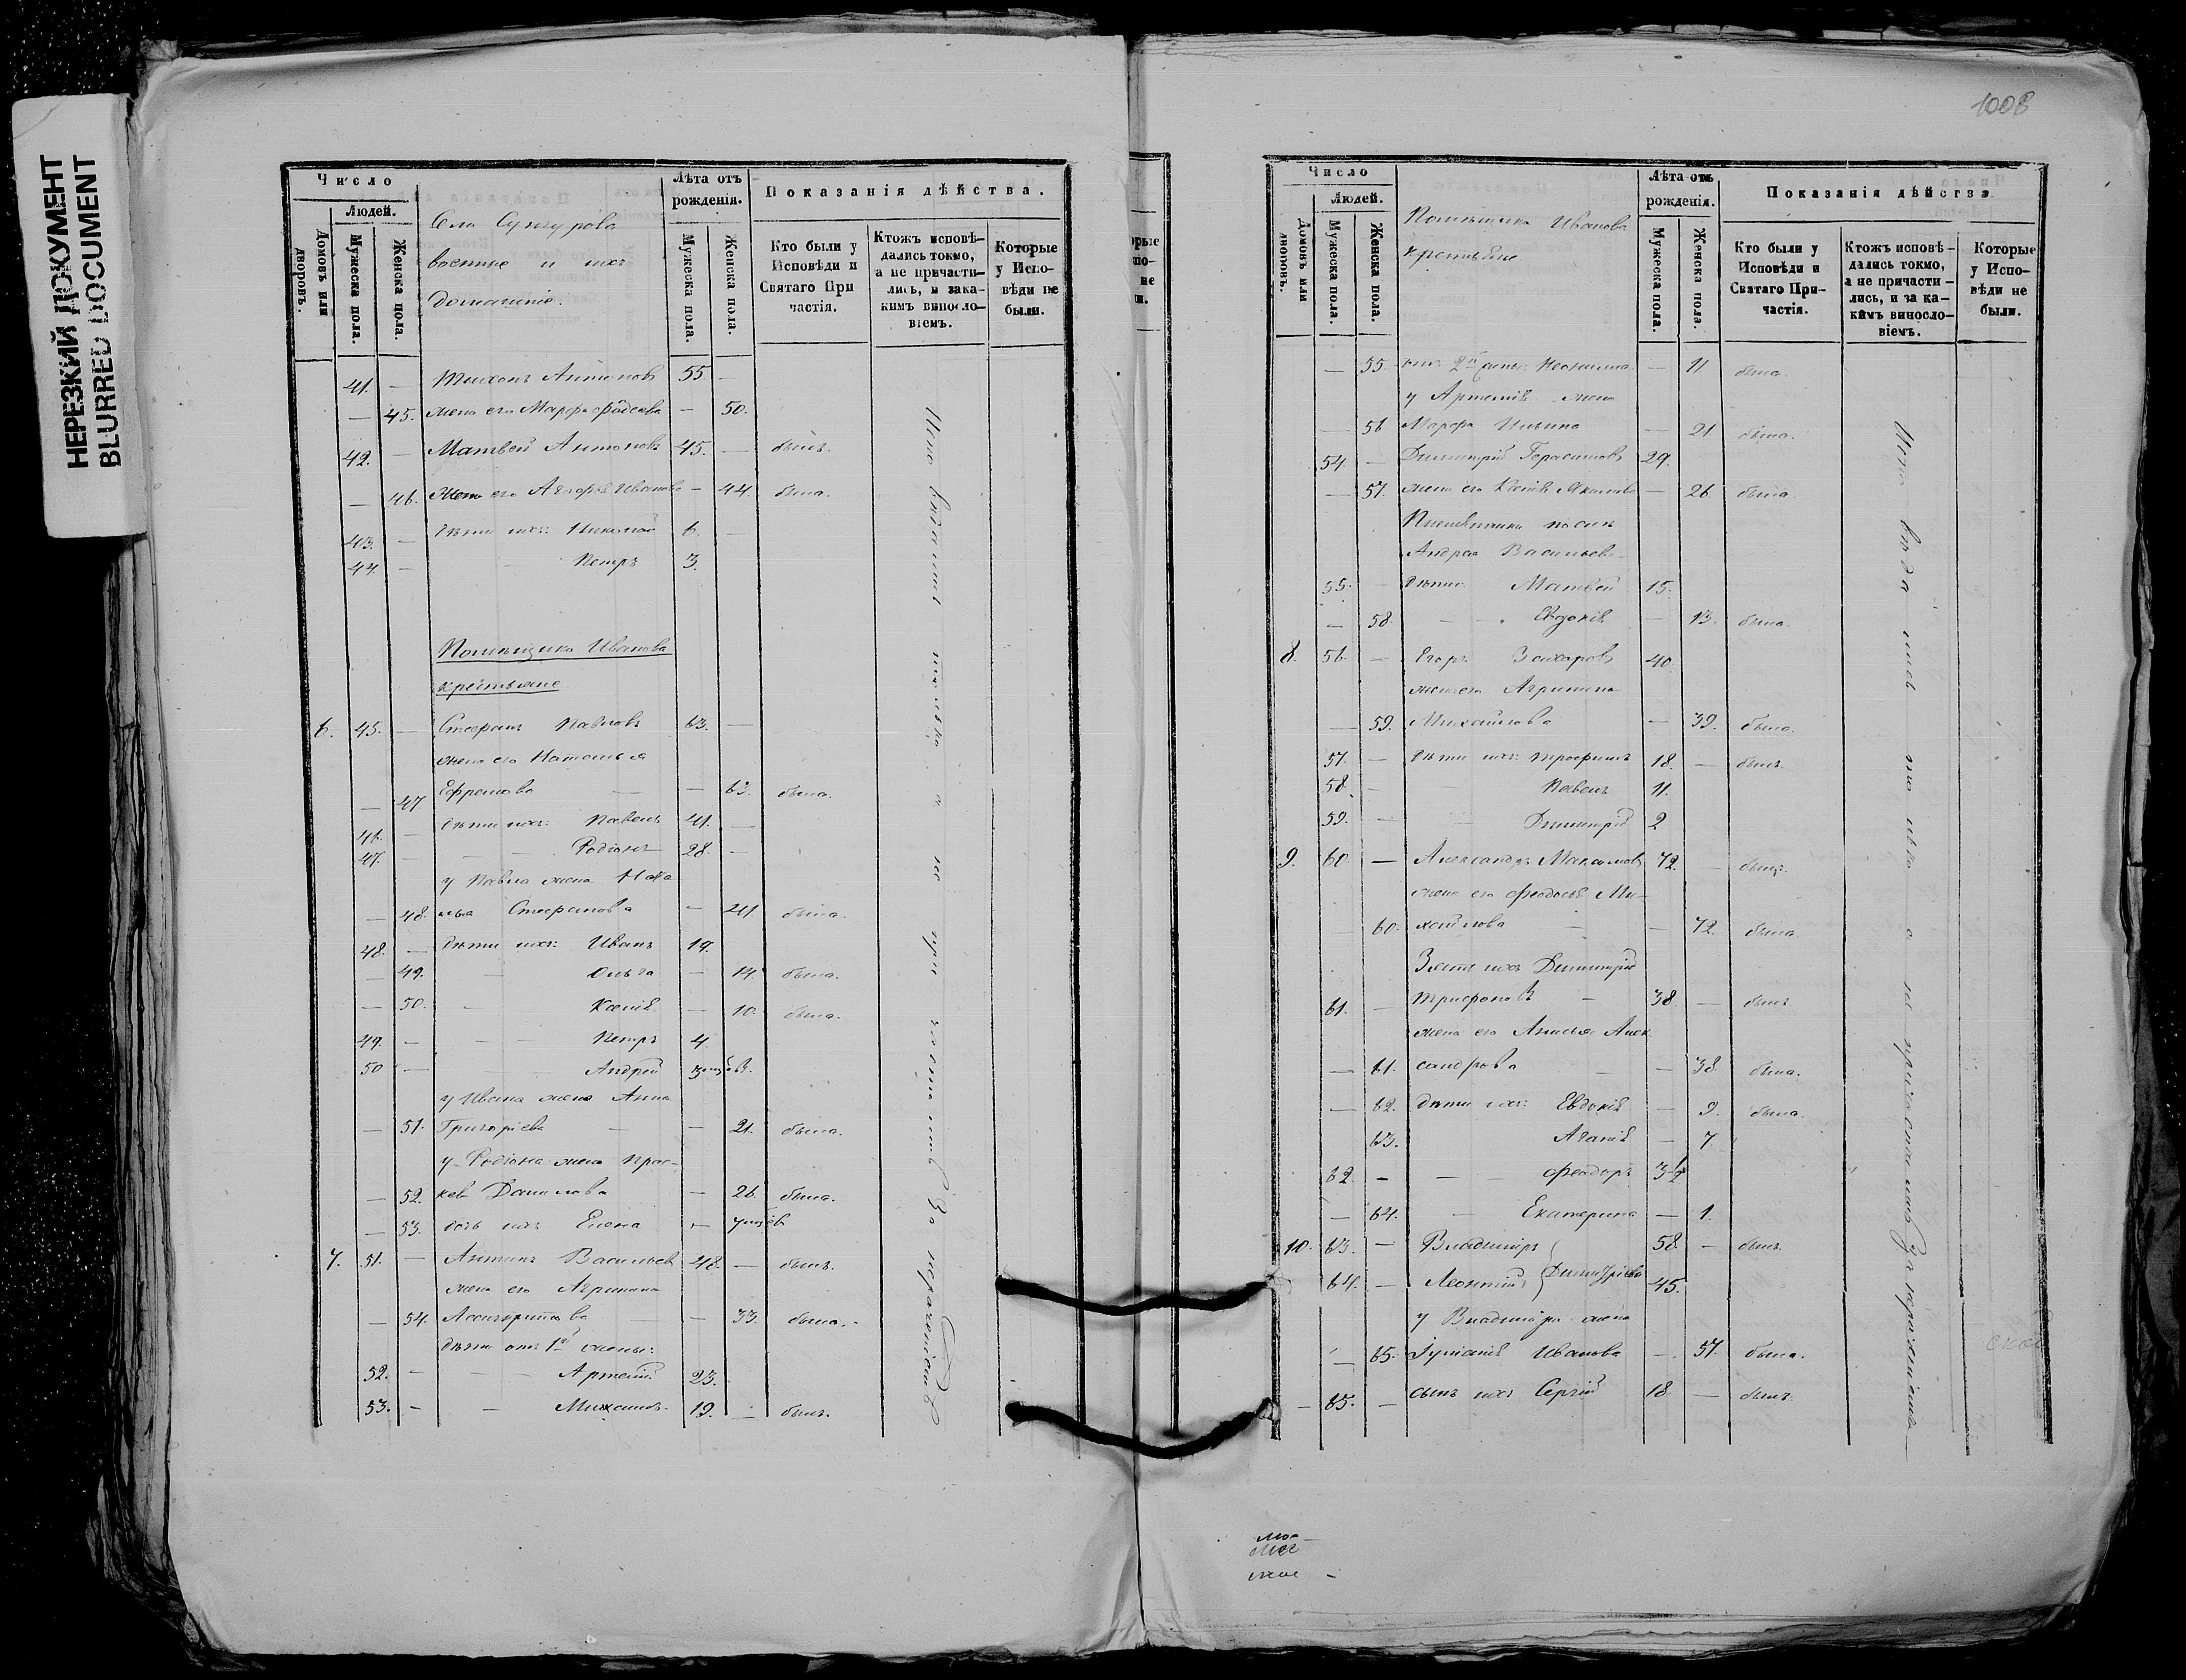 НЕРЕЗКИЙ ДОКУМЕНТ
BLURRED DOCUMENT
Число
Людей.
Домовъ или дворовъ.
Мужеска пола.
Женска пола.
Села Сунгурова
военные и ихъ
домашніе.
Лѣта отъ рожденія.
Мужеска пола.
Женска пола.
Показанія дѣйства.
Кто были у Исповѣди и Святаго При частія.
Ктожъ исповѣ- дались токмо, а не причасти- лись, и зака- кимъ винословіемъ.
Которые у Испо- вѣди не были.
41. — Тихонъ Антоновъ 55 —
— 45. жена его Марфа Фадеева — 50.
42. — Матвей Антоновъ 45. — былъ.
— 46. жена его Агафія Иванова — 44. была.
43. — дѣти ихъ: Николай 6. —
44. — Петръ 3.
Помѣщика Иванова
крестьяне
6. 45. — Стефанъ Павловъ 63. —
жена его Наталья
— 47 Ефремова — — 63. была.
46. — дѣти ихъ: Павелъ 41. —
47. — Родіонъ 28. —
у Павла жена Ната
— 48. лья Стефанова — 41 была.
48. — дѣти ихъ: Иванъ 19.
— 49. — Ольга — 14. была.
— 50. — Ксенія — 10. была.
49. — Петръ 4
50 — Андрей
у Ивана жена Анна
— 51. Григоріева — — 21. была.
у Родіона жена Прас-
— 52. кева Данилова — 26. была.
— 53. дочь ихъ Елена —
7. 51. — Антипъ Васильевъ 48. — былъ.
жена его Агрипина
— 54. — 33. была.
дѣти отъ 1й жены:
52. — Артемій 23. —
53. — Михаилъ 19. — былъ.
только а не при
1008
Число
Людей.
Домовъ или дворовъ.
Мужеска пола.
Женска пола.
Помѣщика Иванова
крестьяне
Лѣта отъ рожденія.
Мужеска пола.
Женска пола.
Показанія дѣйства
Кто были у Исповѣди и Святаго При- частія.
Ктожъ исповѣ- дались токмо, а не причасти- лись, и за ка- кимъ винословіемъ.
Которые у Испо- вѣди не были.
— 55. отъ 2й — 11. была.
у Артемія жена
— 56 Марфа Ильина — 21 была.
54 — Димитрій Герасимовъ 29.
— 57. жена его Ксенія — 26 была.
Андрея Васильева
55. — дѣти Матвей 15.
— 58 Евдокія — 13. была.
8. 56. — Егоръ Захаровъ 40
жена его Агрипина
— 59. Михайлова — 39. была.
57. — дѣти ихъ: Трофимъ 18. — былъ.
58. — Павелъ 11.
59. — Димитрій 2
9. 60. — Александръ Максимовъ 72. — былъ.
жена его Феодосія Ми-
— 60. хайлова — 72. была.
Зять ихъ Димитрій
61. — Трифоновъ — 38. — былъ
жена его Анисья Алек
— 61. сандрова — — 38 была.
— 62. дѣти ихъ: Евдокія — 9. была.
63. Агапія — 7
62. — — Феодоръ 3½
— 64. — Екатерина — 1.
10. 63. — Владиміръ 58. — былъ.
64. — Леонтій Димитріевы 45.
у Владиміра жена
— 65. Іуліанія Иванова — 57. была.
— 65. — сынъ ихъ Сергій 18 — былъ.